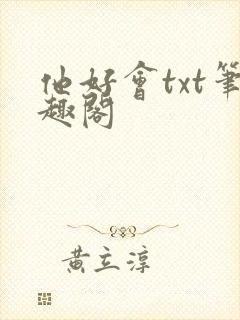 他好會txt筆
趣閣
黃立淳